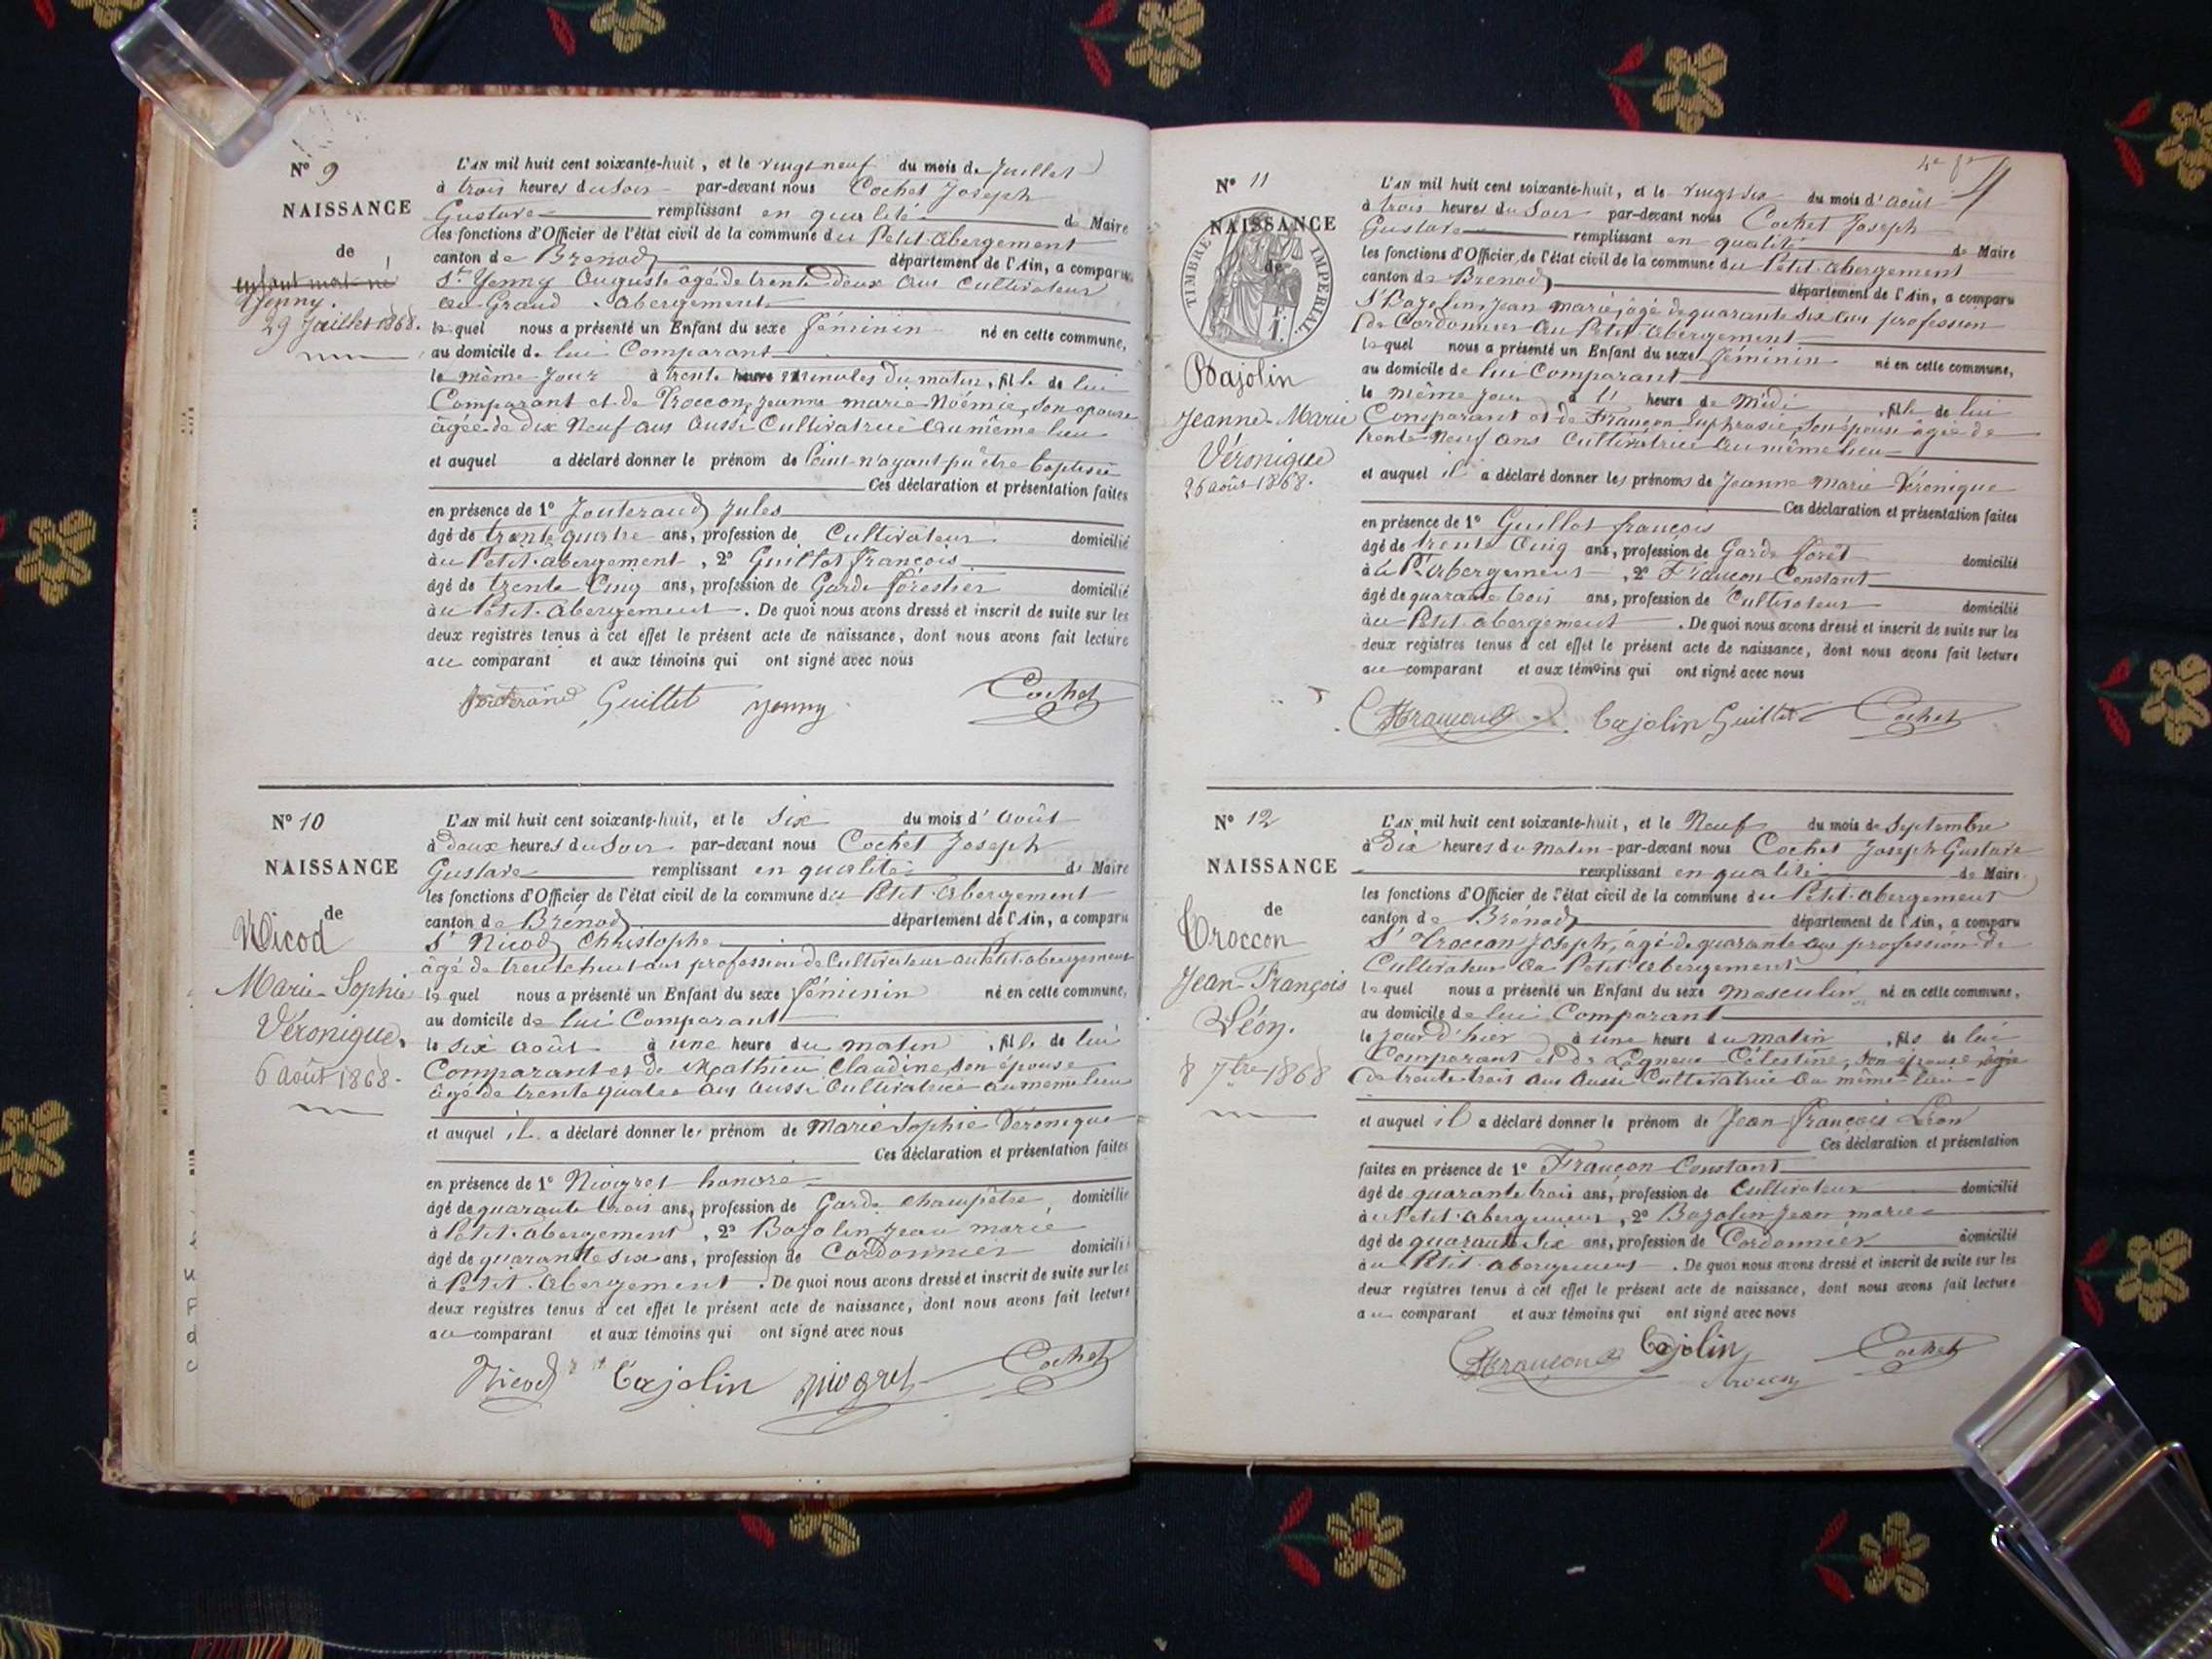 N° 9
NAISSANCE
de
enfant mort-né
Yenny.
29 Juillet 1868.
L'AN mil huit cent soixante-huit, et le vingt neuf du mois de Juillet
à trois heures du Soir par-devant nous Cochet Joseph
Gustave remplissant en qualité de Maire
les fonctions d'Officier de l'état civil de la commune du Petit-abergement
canton de Brenod département de l'Ain, a comparu
Sr Yenny Auguste âgé de trente deux ans Cultivateur
au Grand Abergement
lequel nous a présenté un Enfant du sexe féminin né en cette commune,
au domicile de lui Comparant
le même jour à trente minutes du matin, fille de lui
Comparant et de Troccon Jeanne marie Noémie, Son épouse
âgée de dix Neuf ans Aussi Cultivatrice Au même lieu
et auquel a déclaré donner le prénom de Point n'ayant pu être baptisée
Ces déclaration et présentation faites
en présence de 1° Jouterand Jules
âgé de trente quatre ans, profession de Cultivateur domicilié
au Petit-abergement, 2° Guillot François
âgé de trente Cinq ans, profession de Garde forestier domicilié
au Petit-abergement. De quoi nous avons dressé et inscrit de suite sur les
deux registres tenus à cet effet le présent acte de naissance, dont nous avons fait lecture
au comparant et aux témoins qui ont signé avec nous
Jouterand Guillot Yenny Cochet
N° 10
NAISSANCE
de
Nicod
Marie-Sophie
Véronique.
6 août 1868.
L'AN mil huit cent soixante-huit, et le Six du mois d'Août
à deux heures du Soir par-devant nous Cochet Joseph
Gustave remplissant en qualité de Maire
les fonctions d'Officier de l'état civil de la commune du Petit-abergement
canton de Brénod département de l'Ain, a comparu
Sr Nicod Christophe
âgé de trente huit ans profession de Cultivateur au Petit-abergement
lequel nous a présenté un Enfant du sexe féminin né en cette commune,
au domicile de lui Comparant
le six Août à une heure du matin, fille de lui
Comparant et de Mathieu Claudine, son épouse
âgé de trente quatre ans aussi Cultivatrice au même lieu
et auquel il a déclaré donner les prénom de Marie Sophie Véronique
Ces déclaration et présentation faites
en présence de 1° Nivigret honoré
âgé de quarante trois ans, profession de Garde Champêtre, domicilié
à Petit-abergement, 2° Bajolin Jean marie
âgé de quarante six ans, profession de Cordonnier domicilié
à Petit-abergement. De quoi nous avons dressé et inscrit de suite sur les
deux registres tenus à cet effet le présent acte de naissance, dont nous avons fait lecture
au comparant et aux témoins qui ont signé avec nous
Nicod Bajolin Cochet
N° 11
NAISSANCE
de
TIMBRE IMPERIAL.
Bajolin
Jeanne-Marie
Véronique
26 août 1868.
L'AN mil huit cent soixante-huit, et le vingt six du mois d'Août
à trois heures du Soir par-devant nous Cochet Joseph
Gustave remplissant en qualité de Maire
les fonctions d'Officier de l'état civil de la commune du Petit-abergement
canton de Brenod département de l'Ain, a comparu
Sr Bajolin Jean marie, âgé de quarante six ans profession
de Cordonnier Au Petit-abergement
lequel nous a présenté un Enfant du sexe féminin né en cette commune,
au domicile de lui Comparant
le même jour à 11 heure de Midi, fille de lui
Comparant et de Françon Euphrasie Son épouse âgée de
trente Neuf ans Cultivatrice Au même lieu
et auquel il a déclaré donner les prénoms de Jeanne Marie Véronique
Ces déclaration et présentation faites
en présence de 1° Guillot françois
âgé de trente Cinq ans, profession de Garde forêt domicilié
au Pt-abergement, 2° Françon Constant
âgé de quarante trois ans, profession de Cultivateur domicilié
au Petit-abergement. De quoi nous avons dressé et inscrit de suite sur les
deux registres tenus à cet effet le présent acte de naissance, dont nous avons fait lecture
au comparant et aux témoins qui ont signé avec nous
Françon Bajolin Guillot Cochet
N° 12
NAISSANCE
de
Troccon
Jean-François
Léon.
8 7bre 1868
L'AN mil huit cent soixante-huit, et le Neuf du mois de Septembre
à Dix heures du Matin par-devant nous Cochet Joseph Gustave
remplissant en qualité de Maire
les fonctions d'Officier de l'état civil de la commune du Petit-abergement
canton de Brénod département de l'Ain, a comparu
Sr Troccon Joseph, âgé de quarante ans profession de
Cultivateur Au Petit-abergement
lequel nous a présenté un Enfant du sexe masculin né en cette commune,
au domicile de lui Comparant
le jour d'hier à une heure du matin, fils de lui
Comparant et de Célestine, son épouse âgée
de trente trois ans Aussi Cultivatrice Au même lieu
et auquel il a déclaré donner le prénom de Jean François Léon
Ces déclaration et présentation
faites en présence de 1° Françon Constant
âgé de quarante trois ans, profession de Cultivateur domicilié
au Petit-abergement, 2° Bajolin Jean marie
âgé de quarante Six ans, profession de Cordonnier domicilié
au Petit-abergement. De quoi nous avons dressé et inscrit de suite sur les
deux registres tenus à cet effet le présent acte de naissance, dont nous avons fait lecture
au comparant et aux témoins qui ont signé avec nous
Françon Bajolin Cochet